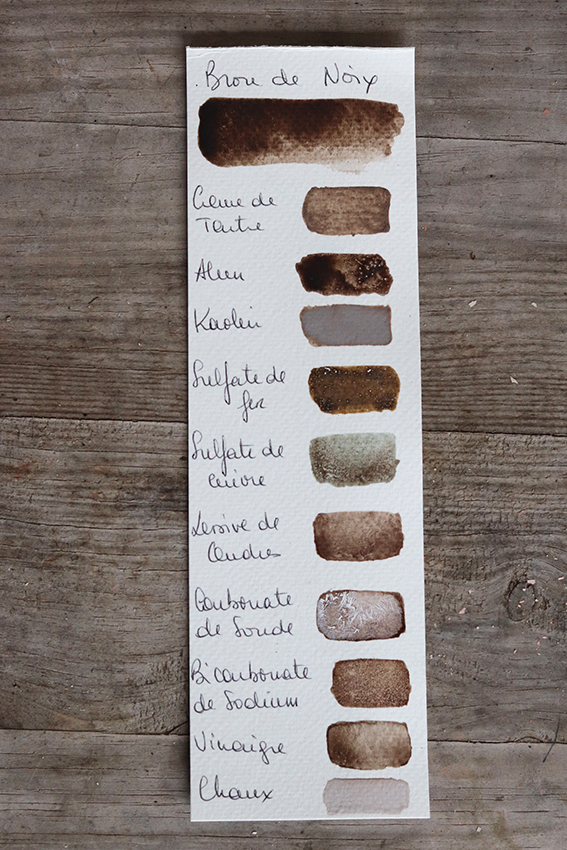 Brou de Noix
Crème de
Tartre
Alun
Kaolin
Sulfate de
fer
Sulfate de
cuivre
Lessive de
Cendres
Carbonate
de Soude
Bicarbonate
de Sodium
Vinaigre
Chaux